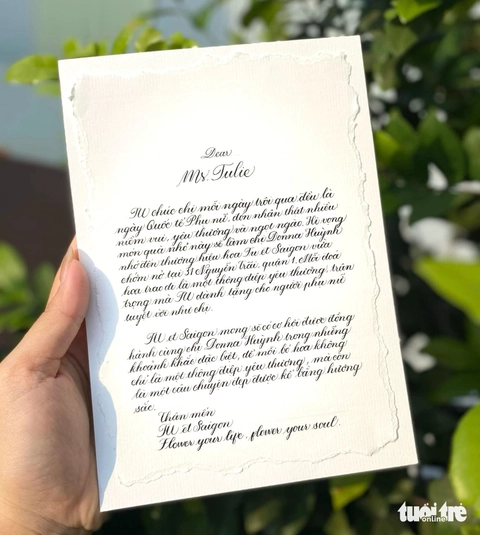 Dear
Ms. Tulie
TU chúc chị mỗi ngày trôi qua đều là
ngày Quốc tế Phụ nữ, đón nhận thật nhiều
niềm vui, yêu thương và ngọt ngào. Hi vọng
món quà nhỏ này sẽ làm chị Donna Huỳnh
nhớ đến thương hiệu hoa Tu et Saigon vừa
chớm nở tại 31 Nguyễn Trãi, quận 1. Mỗi đoá
hoa trao đi là một thông điệp yêu thương, trân
trọng mà TU dành tặng cho người phụ nữ
tuyệt vời như chị.
TU et Saigon mong sẽ có cơ hội được đồng
hành cùng chị Donna Huỳnh trong những
khoảnh khắc đặc biệt, để mỗi bó hoa không
chỉ là một thông điệp yêu thương, mà còn
là một câu chuyện đẹp được kể bằng hương
sắc.
Thân mến
TU et Saigon
Flower your life, flower your soul.
tuổi trẻ
online